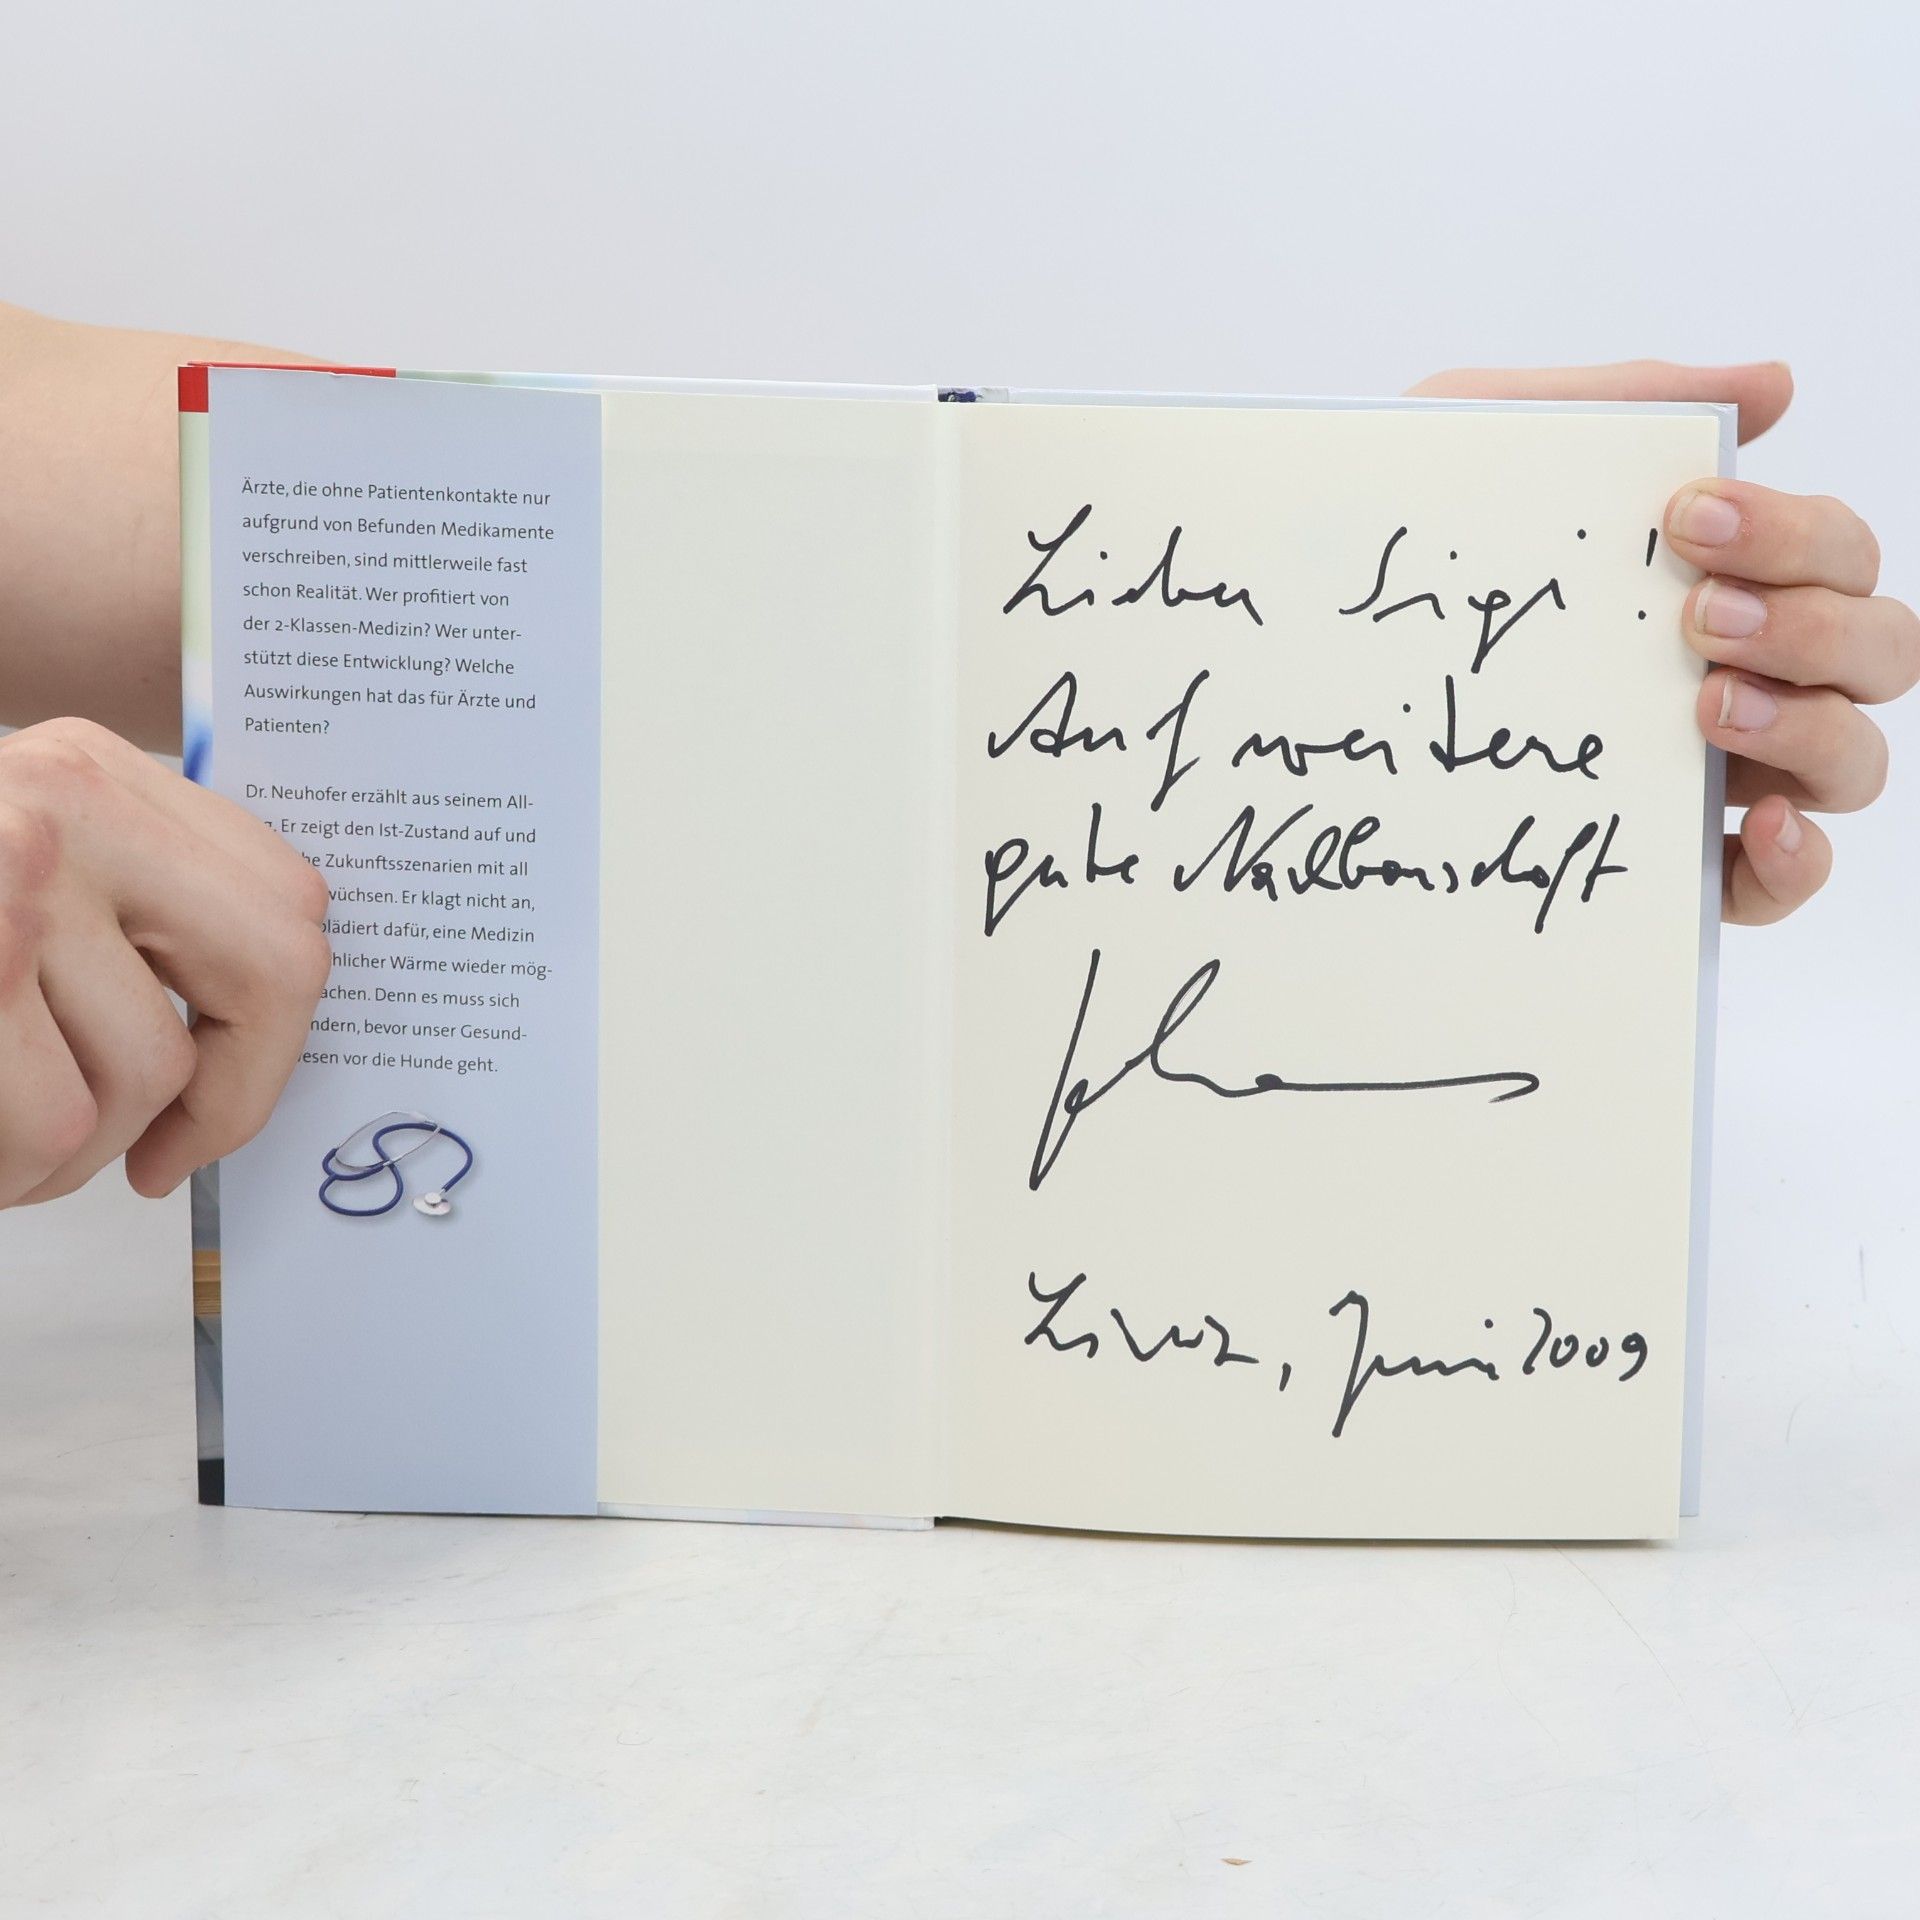 Ärzte, die ohne Patientenkontakte nur
aufgrund von Befunden Medikamente
verschreiben, sind mittlerweile fast
schon Realität. Wer profitiert von
der 2-Klassen-Medizin? Wer unter-
stützt diese Entwicklung? Welche
Auswirkungen hat das für Ärzte und
Patienten?
Dr. Neuhofer erzählt aus seinem All-
Er zeigt den Ist-Zustand auf und
Zukunftsszenarien mit all
Er klagt nicht an,
plädiert dafür, eine Medizin
Wärme wieder mög-
Denn es muss sich
bevor unser Gesund-
vor die Hunde geht.
Lieber Sigi!
Auf weitere
gute Nachbarschaft
Linz, Juni 2009